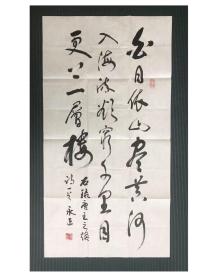 白日依山盡黃河
入海流欲窮千里目
更上一層樓
右録唐王之渙
詩一首